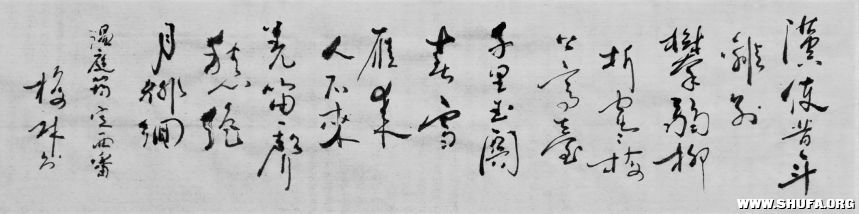 漢使昔年
離別
攀弱柳
折寒梅
上高臺
千里玉關
春雪
雁來
人不來
羌笛一聲
愁絕
月徘徊
溫庭筠定西番
WWW.SHUFA.ORG